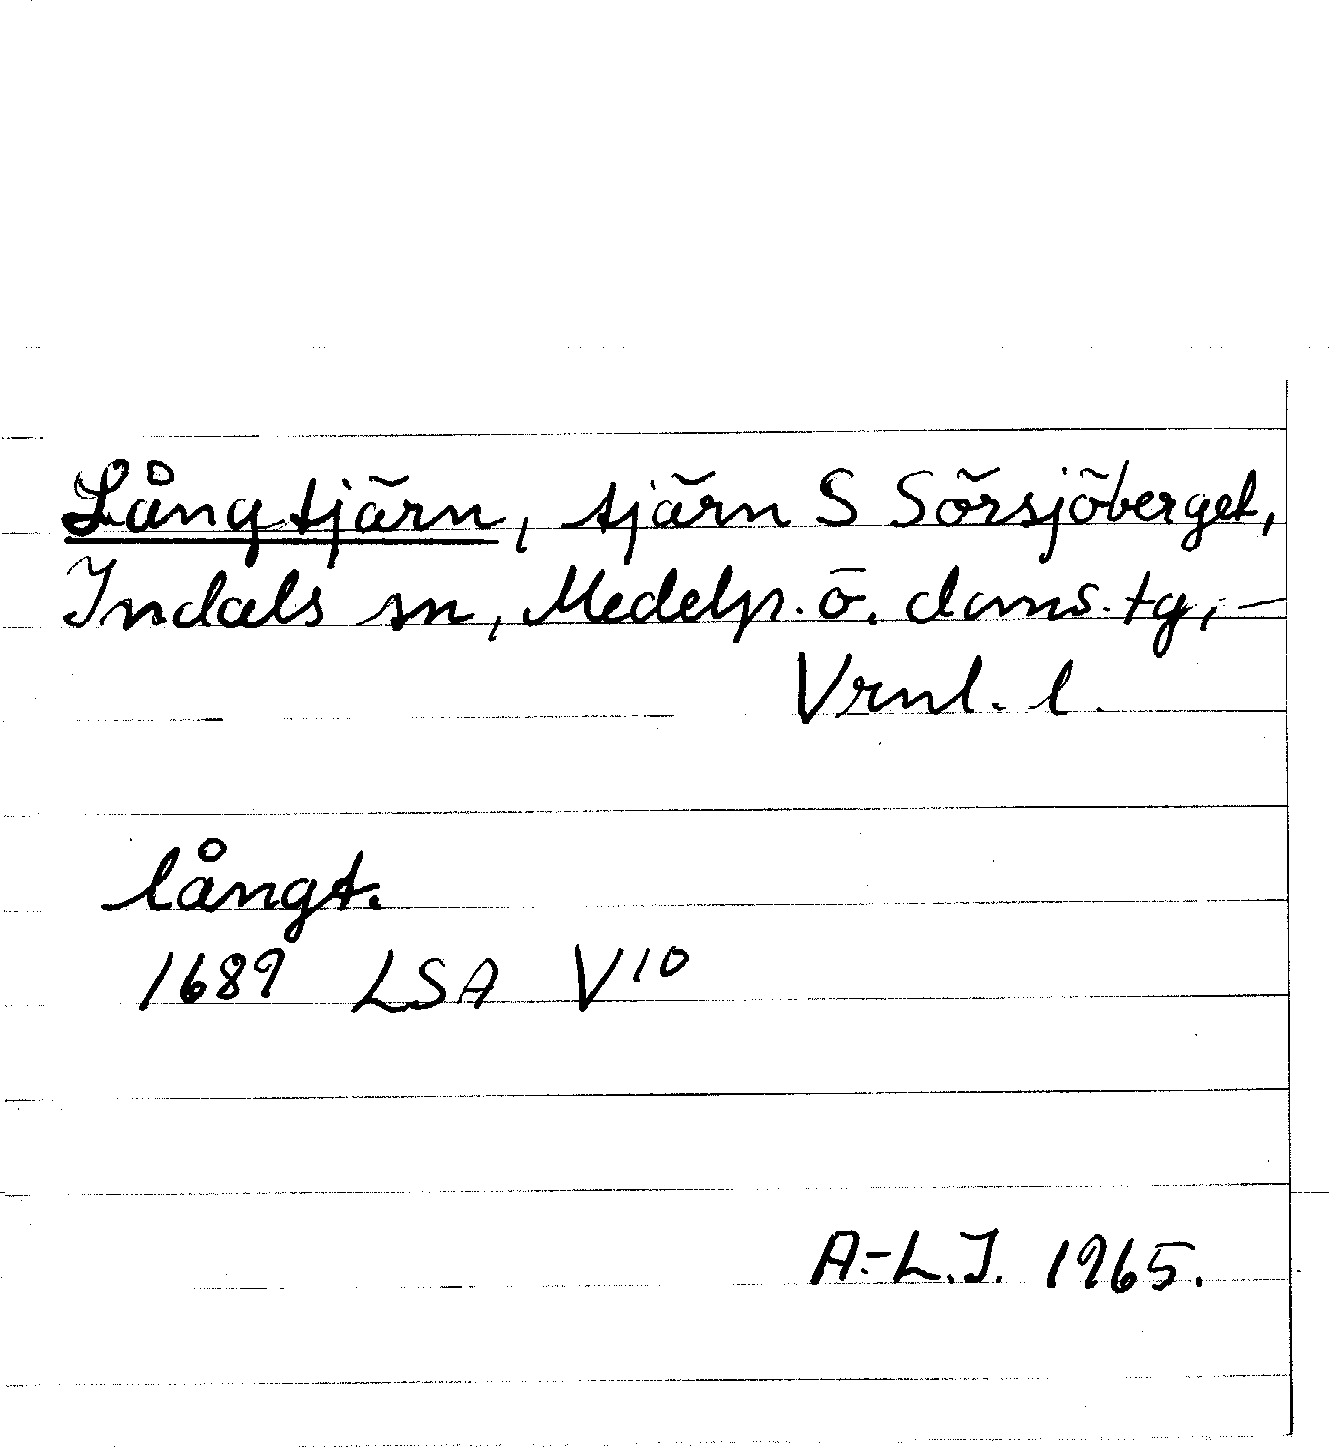 Långtjärn, tjärn S Sörsjöberget,
Indals sn, Medelp. ö. doms. tg, —
Vrnl. l.
långt.
1689 LSA V 10
A.-L.J. 1965.